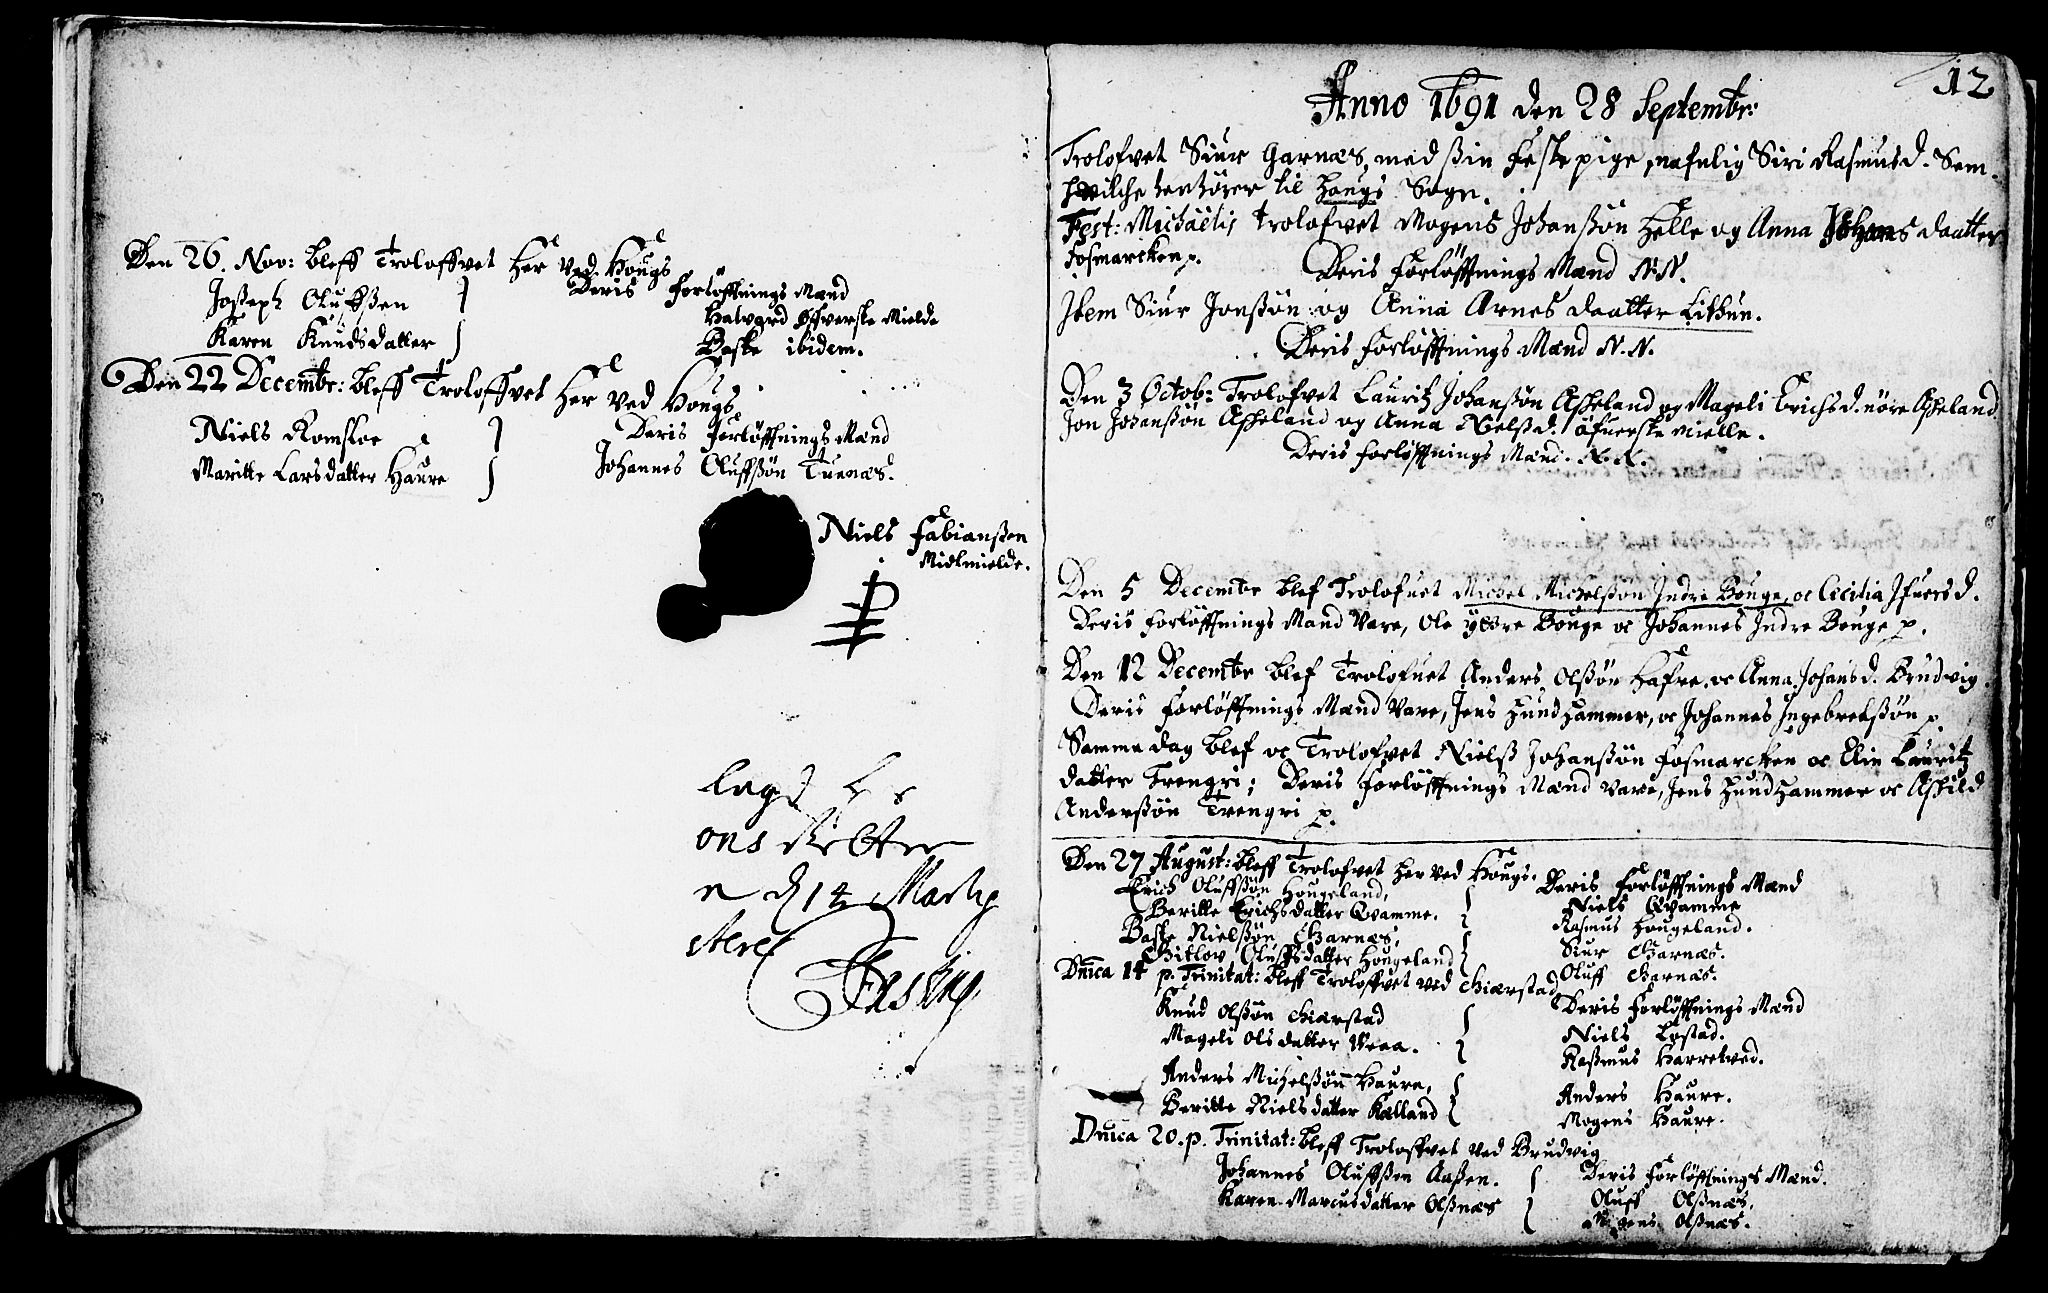 Den 26. Nov: bleff Troloffvet her ved Hougs
Joseph Oluffsen
Karen Knudsdatter
Deris Forlöffnings Mænd
Halvord Øffverste Mielde
Baste ibidem.
Den 22 Decembr: bleff Troloffvet her ved Hougs.
Niels Romsloe
Maritte Larsdatter Haure
Deris Forlöffnings Mænd
Johannes Oluffsön Tunnæs.
Niels Fabiansen
Midtmielde.
lagt
ons
d 14 Marty
12
Anno 1691 den 28 Septembr:
Trolofvet Siur Garnæs, med ßin Feste pige, nafnlig Siri Rasmusd. Sem.
hvilche henhörer til Hougs Sogn.
Fest: Michaëlis trolofvet Mogens Johanßön Helle og Anna Johans daatter
Fosmarcken p.
Deris Forlöffnings Mænd N.N.
Item Siur Jonßön og Anna Arnes daatter Lithun.
Deris Forlöffnings Mænd N.N.
Den 3 Octob: Trolofvet Lauritz Johanßön Asheland og Mageli Erichsd. nöre Asheland
Jon Johanßön Asheland og Anna Nielßd. öfverste Mielle.
Deris Forlöffnings Mænd. N.N.
Den 5 Decembr blef Trolofuet Michel Michelßön Indre Bouge, oc Cecilia Ifuersd.
Deris Forlöffnings Mænd Vare, Ole ytre Bouge oc Johannes Indre Bouge p.
Den 12 Decembr blef Trolofuet Anders Olßön Hafre, oc Anna Johansd. Brudvig.
Deris Forlöffnings Mænd Vare, Jens Hundhammer, oc Johannes Ingebretßön p
Samme dag blef oc Trolofvet Nielß Johanßön Fosmarcken oc Elin Lauritz
datter Trengri; Deris Forlöffnings Mænd Vare, Jens Hundhammer oc Askild
Anderßön Trengri p.
Den 27 August: bleff Trolofvet her ved Hougs.
Erich Oluffßön Hougeland,
Beritte Erichsdatter Qvamme.
Baste Nielßön Garnæs,
Gitlov Oluffsdatter Hougeland
Deris Forlöffnings Mænd
Niels Qvamme
Rasmus Hougeland.
Siur Garnæs.
Oluff Garnæs.
Dnica 14 p. Trinitat: bleff Troloffvet ved Giærstad
Knud Olßön Giærstad
Mageli Olsdatter Veaa.
Deris Forlöffnings Mænd
Niels Lostad.
Raßmus Harretved.
Anders Michelßön Haure,
Beritte Nielsdatter Kalland
Anders Haure.
Mogens Haure.
Dnica 20. p. Trinitat: bleff Troloffvet ved Brudvig
Johannes Oluffßen Aaßen.
Karen Marcusdatter Olßnæs
Deris Forlöffnings Mænd.
Oluff Olßnæs,
Mogens Olßnæs.